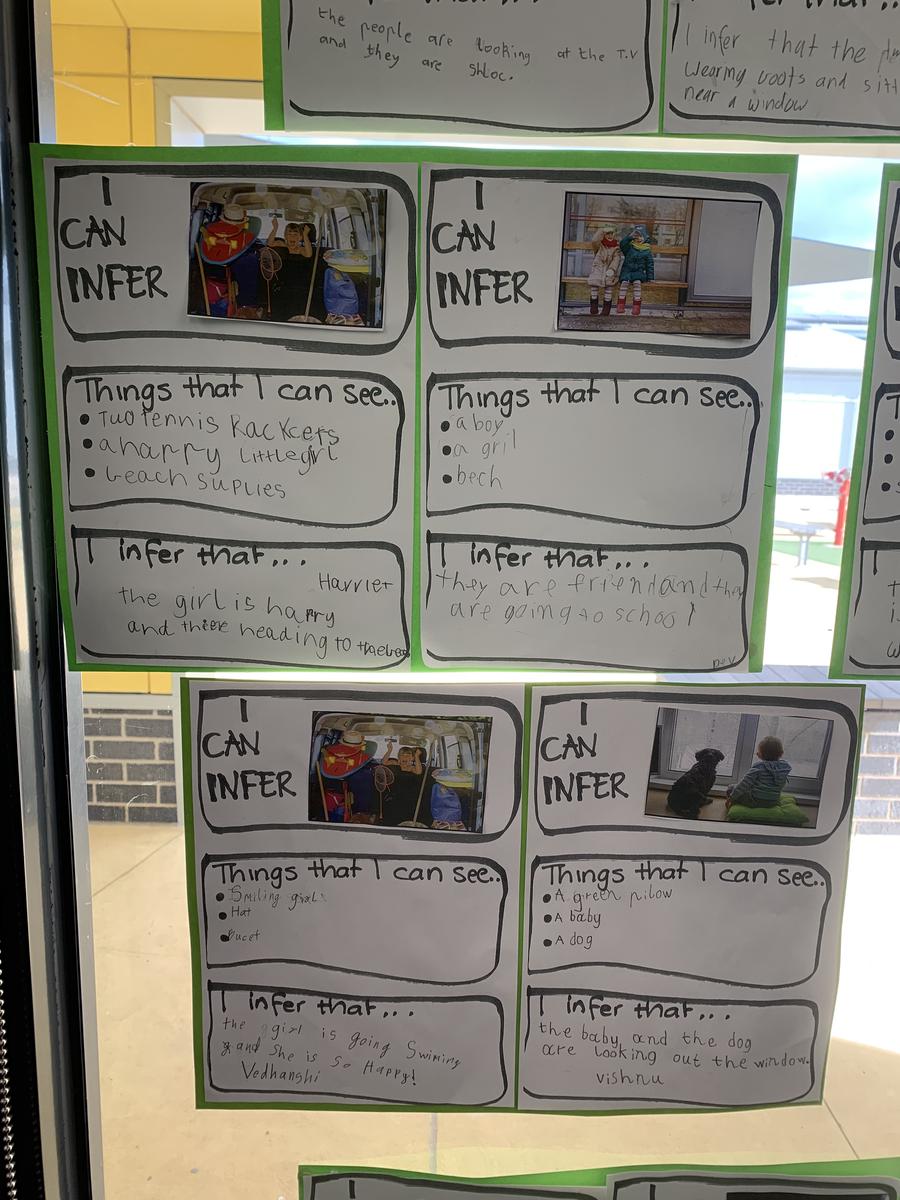 the people are looking at the T.V
and they are shloc.
I infer that the
Wearing voots and sitt
near a window
I
CAN
INFER
Things that I can see..
• Two tennis Rackets
• a happy little girl
• beach suplies
I infer that...
Harriet
the girl is happy
and there heading to
I
CAN
INFER
Things that I can see..
• a boy
• a gril
• bech
I infer that...
they are friend and they
are going to school
Dev
I
CAN
INFER
Things that I can see..
• Smiling girl
• Hat
• Bucet
I infer that...
the girl is going Swiming
and She is so Happy!
Vedhanshi
I
CAN
INFER
Things that I can see..
• A green pilow
• A baby
• A dog
I infer that...
the baby and the dog
are looking out the window.
vishnu